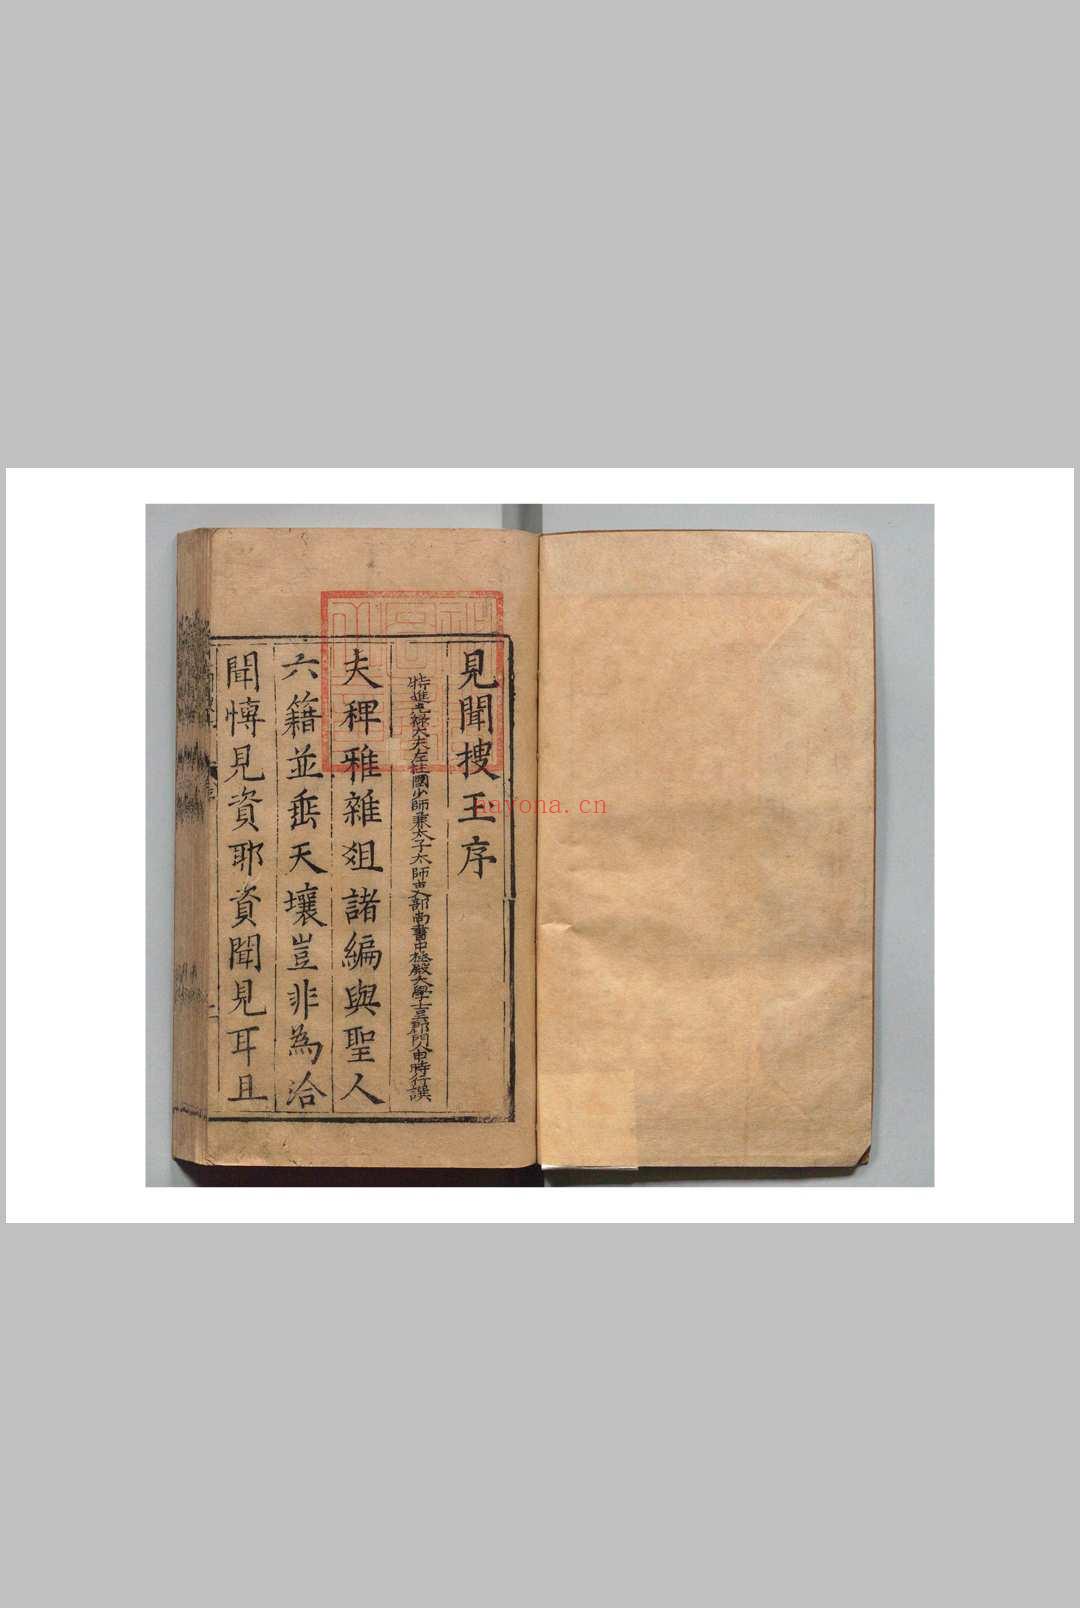 見聞搜玉序
特進光祿大夫左柱國少師兼太子太師吏部尚書中極殿大學士吳郡門人申時行撰
夫稗雅雜俎諸編與聖人
六籍並垂天壤豈非為洽
聞慱見資耶資聞見耳且
nayona.cn